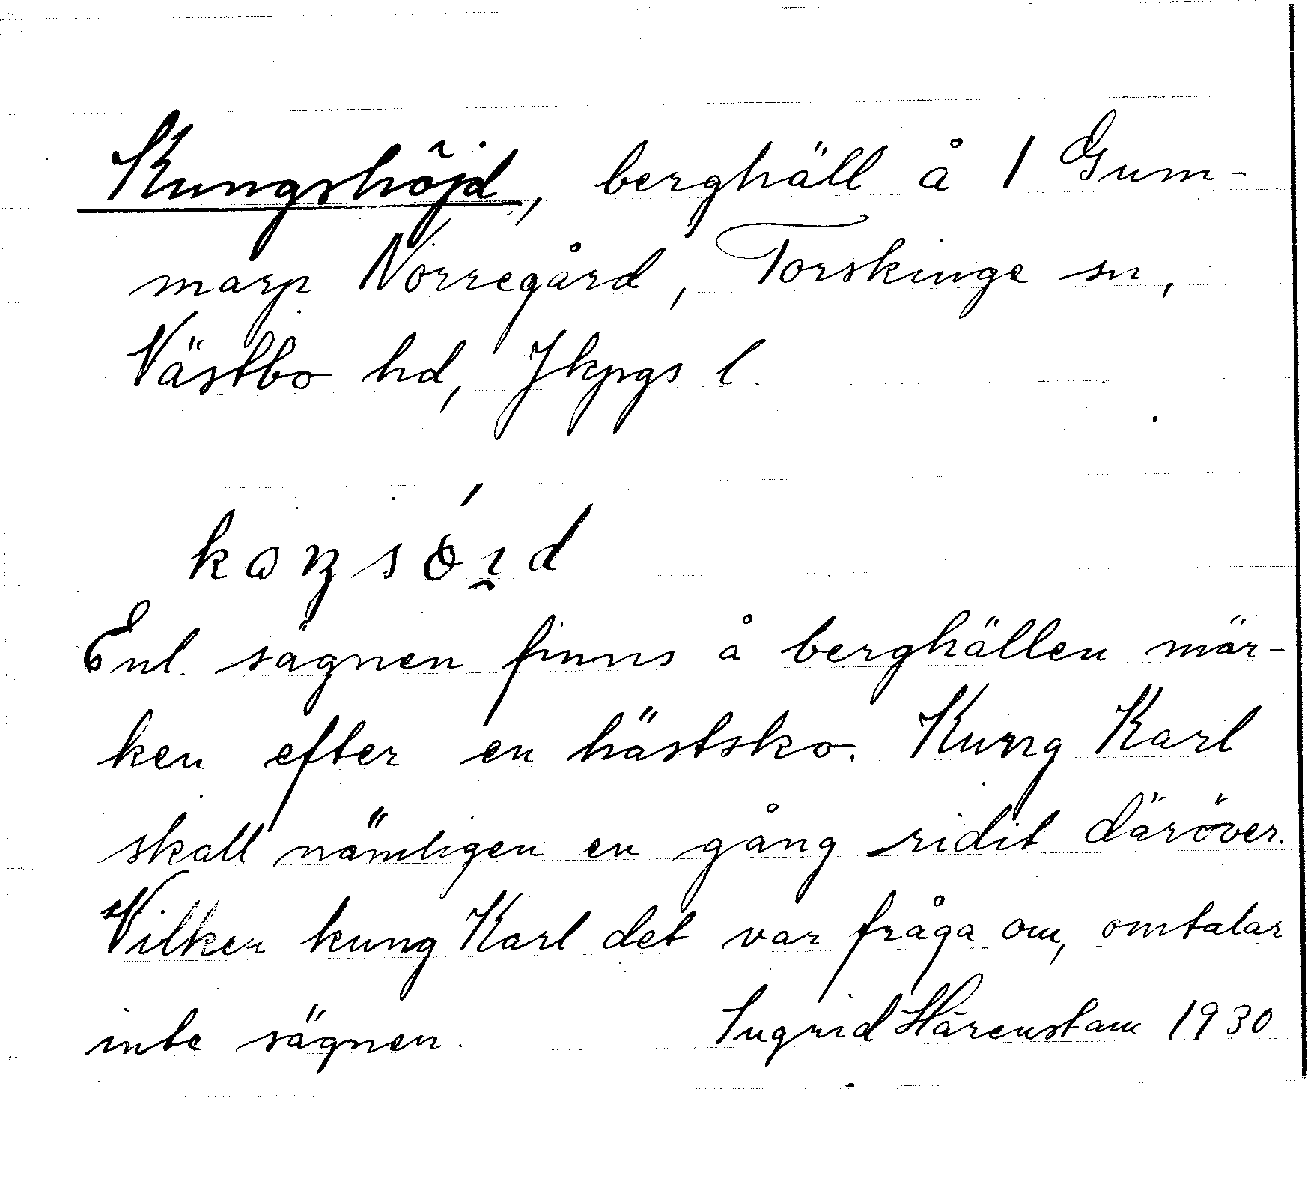 Kungshöjd, berghäll å 1 Gum-
marp Norregård, Torskinge sn,
Västbo hd, Jkpgs l.
Enl. sägnen finns å berghällen mär-
ken efter en hästsko. Kung Karl
skall nämligen en gång ridit däröver.
Vilken kung Karl det var fråga om, omtalar
inte sägnen. Ingrid Härenstam 1930